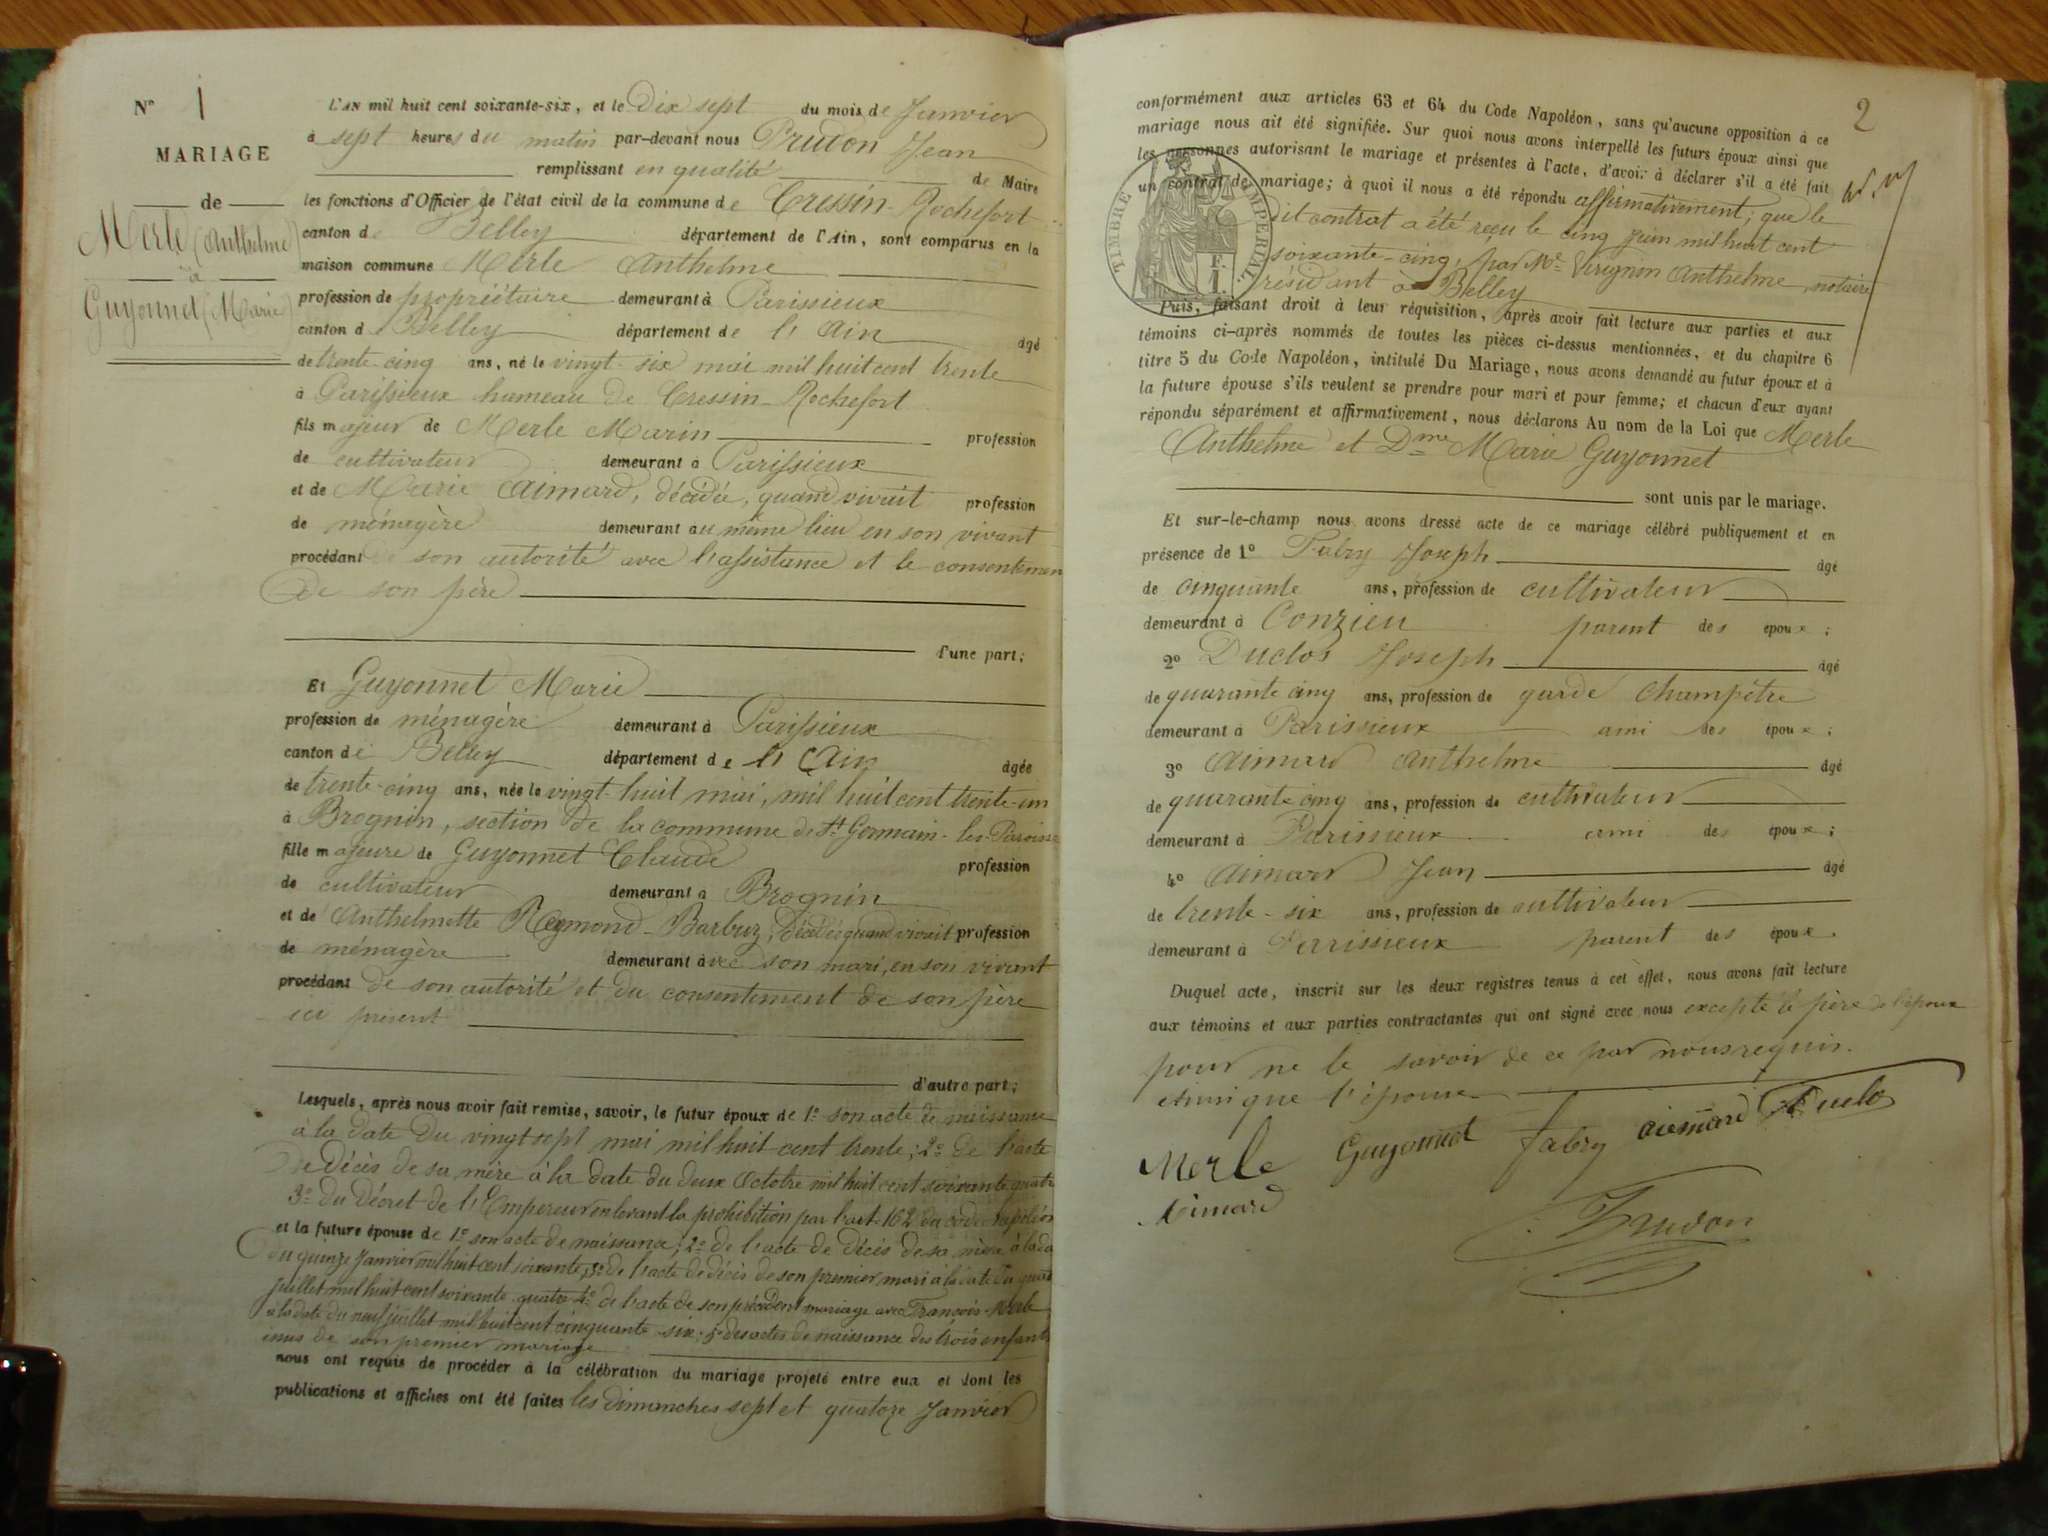 N° 1
MARIAGE
de
Merle (Anthelme)
à
Guyonnet (Marie)
L'AN mil huit cent soixante-six, et le Dix sept du mois de Janvier
à sept heures du matin par-devant nous Prudon Jean
remplissant en qualité de Maire
les fonctions d'Officier de l'état civil de la commune de Cressin-Rochefort
canton de Belley département de l'Ain, sont comparus en la
maison commune Merle Anthelme
profession de propriétaire demeurant à Parissieux
canton de Belley département de l'Ain âgé
de trente-cinq ans, né le vingt-six mai mil huit cent trente
à Parissieux hameau de Cressin-Rochefort
fils majeur de Merle Marin profession
de cultivateur demeurant à Parissieux
et de Marie Aimard, décédée, quand vivait profession
de ménagère demeurant au même lieu en son vivant
procédant de son autorité avec l'assistance et le consentemen
de son père
d'une part;
Et Guyonnet Marie
profession de ménagère demeurant à Parissieux
canton de Belley département de l'Ain âgée
de trente-cinq ans, née le vingt-huit mai, mil huit cent trente-un
à Brognin, section de la commune de St Germain-les-Paroiss
fille majeure de Guyonnet Claude profession
de cultivateur demeurant à Brognin
et de Anthelmette Reymond-Barbuz, décédée quand vivait profession
de ménagère demeurant avec son mari, en son vivant
procédant de son autorité et du consentement de son père
ici présent
d'autre part;
Lesquels, après nous avoir fait remise, savoir, le futur époux de 1° son acte de naissance
à la date du vingt sept mai mil huit cent trente; 2° de l'acte
de décès de sa mère à la date du deux Octobre mil huit cent soixante quatre
3° du Décret de l'Empereur enlevant la prohibition par l'art. 162 du code napoléon
et la future épouse de 1° son acte de naissance; 2° de l'acte de décès de sa mère à la da
du quinze Janvier mil huit cent soixante, 3° de l'acte de décès de son premier mari à la date du quat
juillet mil huit cent soixante-quatre 4° de l'acte de son précédent mariage avec François Merle
à la date du neuf juillet mil huit cent cinquante-six. 5° des actes de naissance des trois enfants
issus de son premier mariage
nous ont requis de procéder à la célébration du mariage projeté entre eux et dont les
publications et affiches ont été faites les dimanches sept et quatorze Janvier
2
conformément aux articles 63 et 64 du Code Napoléon, sans qu'aucune opposition à ce
mariage nous ait été signifiée. Sur quoi nous avons interpellé les futurs époux ainsi que
les personnes autorisant le mariage et présentes à l'acte, d'avoir à déclarer s'il a été fait
un contrat de mariage; à quoi il nous a été répondu affirmativement; que le
dit contrat a été reçu le cinq juin mil huit cent
soixante-cinq, par Me Vuignon Anthelme, notaire
résidant à Belley
TIMBRE IMPERIAL
1 F.
Puis, faisant droit à leur réquisition, après avoir fait lecture aux parties et aux
témoins ci-après nommés de toutes les pièces ci-dessus mentionnées, et du chapitre 6
titre 5 du Code Napoléon, intitulé Du Mariage, nous avons demandé au futur époux et à
la future épouse s'ils veulent se prendre pour mari et pour femme; et chacun d'eux ayant
répondu séparément et affirmativement, nous déclarons Au nom de la Loi que Merle
Anthelme et Dme Marie Guyonnet
sont unis par le mariage.
Et sur-le-champ nous avons dressé acte de ce mariage célébré publiquement et en
présence de 1° Fabry Joseph âgé
de cinquante ans, profession de cultivateur
demeurant à Conzieu parent des époux;
2° Duclos Joseph âgé
de quarante cinq ans, profession de garde champêtre
demeurant à Parissieux ami des époux;
3° Aimard Anthelme âgé
de quarante cinq ans, profession de cultivateur
demeurant à Parissieux ami des époux;
4° Aimard Jean âgé
de trente-six ans, profession de cultivateur
demeurant à Parrissieux parent des époux.
Duquel acte, inscrit sur les deux registres tenus à cet effet, nous avons fait lecture
aux témoins et aux parties contractantes qui ont signé avec nous excepté le père de l'époux
pour ne le savoir de ce par nous requis.
ainsi que l'épouse
Merle Guyonnet Fabry aimard Duclo
Aimard
Prudon